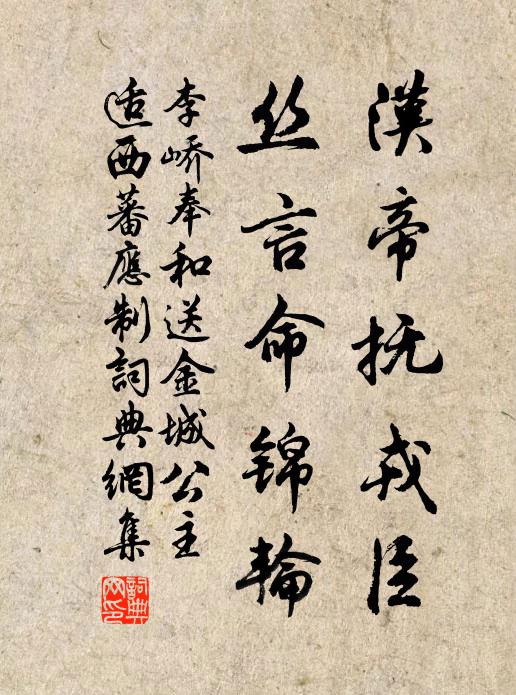 漢帝抚戎臣
丝言命锦輪
李峤奉和送金城公主
适西蕃應制詞典網集
詞典网印